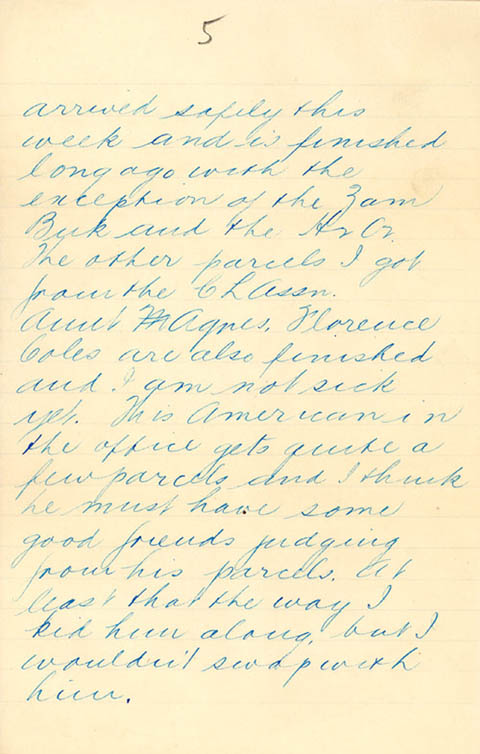 5
arrived safely this
week and is finished
long ago with the
exception of the Zam
Buk and the
The other parcels I got
from the C L Assn.
Aunt Agnes, Florence
Coles are also finished
and I am not sick
yet. This American in
the office gets quite a
few parcels and I think
he must have some
good friends judging
from his parcels. At
least that the way I
kid him along, but I
wouldn't swap with
him.